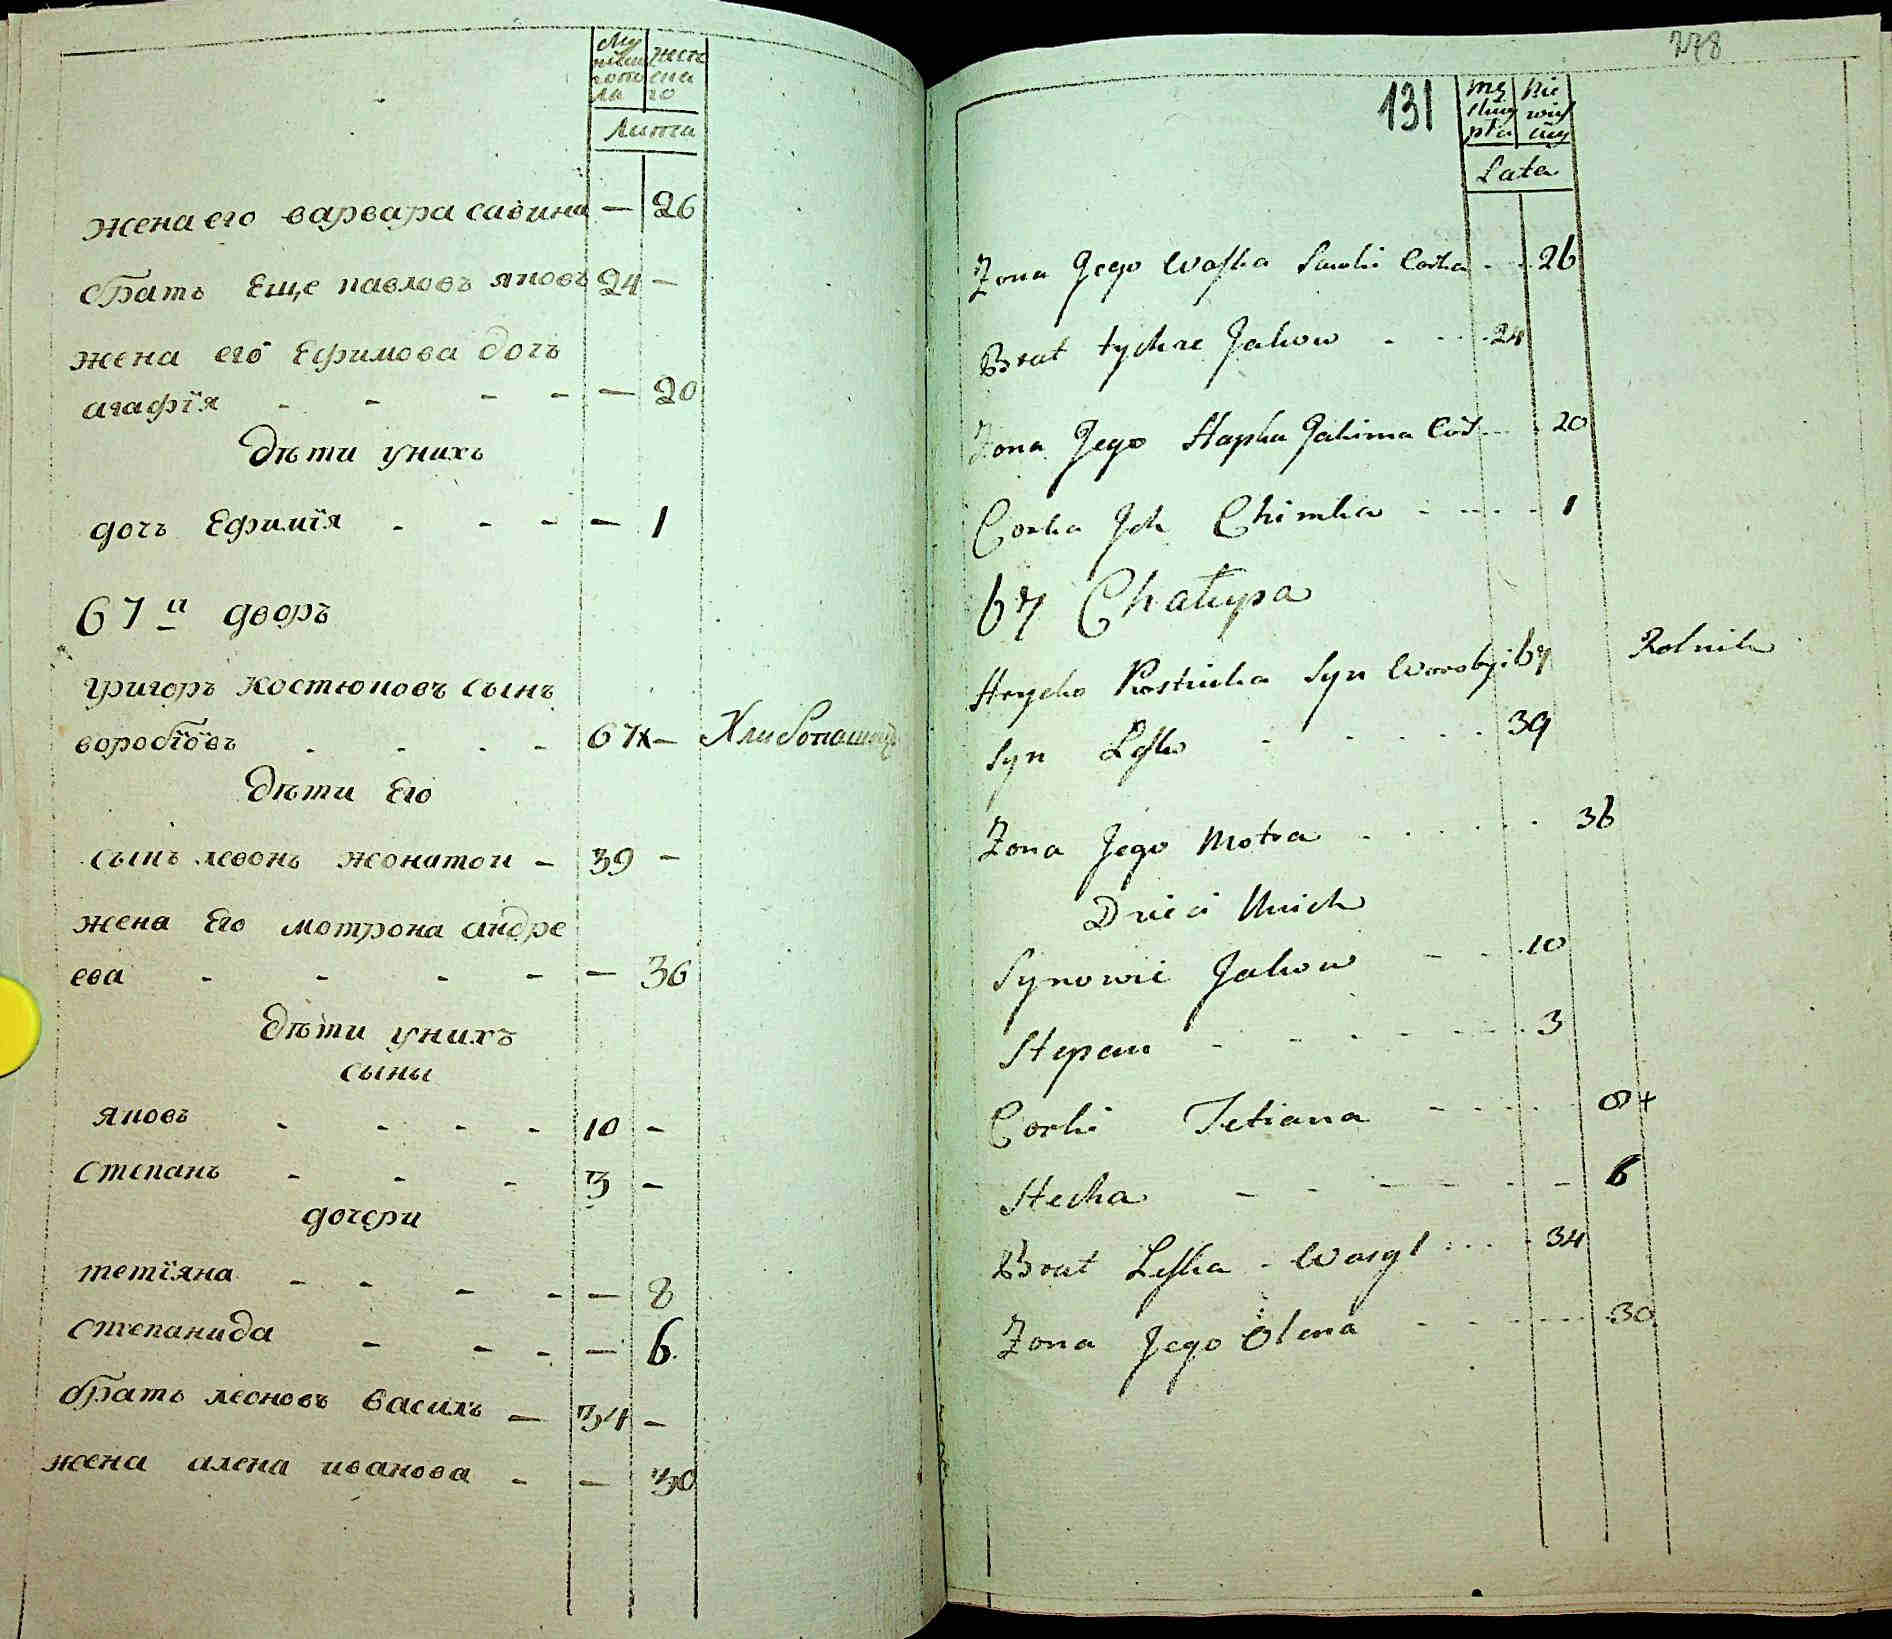 Му жеск ого по ла
женска го
Лѣта
жена его варвара савина — 26
братъ Еще павловъ яковъ 24 —
жена его Ефимова дочь
агафїя - - - - — 20
дѣти унихъ
дочь Ефимїя - - - — 1
67 й дворъ
григоръ костюковъ сынъ
воробїовъ - - - - 67 — Хлибопашец
дѣти Его
сынъ левонъ жонатои — 39 —
жена Его мотрона андре
ева - - - - — 36
дѣти унихъ
сыны
яковъ - - - - 10 —
степанъ - - - 3 —
дочери
тетїяна - - - - — 8
степанида - - - — 6
братъ леоновъ василь — 34 —
жена алена иванова - — 30
278
131
Lata
Zona Jego Waska Sawki Corka - - 26
Brat tychze Jakow - - - 24
Zona Jego Hapka Jakima Cor - - 20
Corka Ich Chimka - - - - 1
67 Chałupa
Hrycko Kostiuka Syn Woroby: 67 Rolnik
Syn Lesko - - - - - - 39
Zona Jego Motra - - - - - - 36
Dzieci Unich
Synowie Jakow - - - 10
Stepan - - - - - - 3
Corki Tetiana - - - - - 8 +
Stecha - - - - - - 6
Brat Leska - Wasyl - - - 34
Zona Jego Olena - - - - - 30